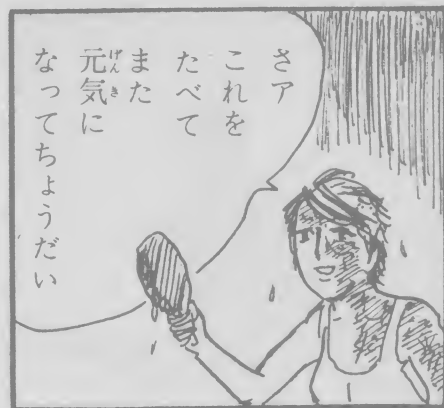 さア
これを
たべて
また
元気に
なってちょうだい